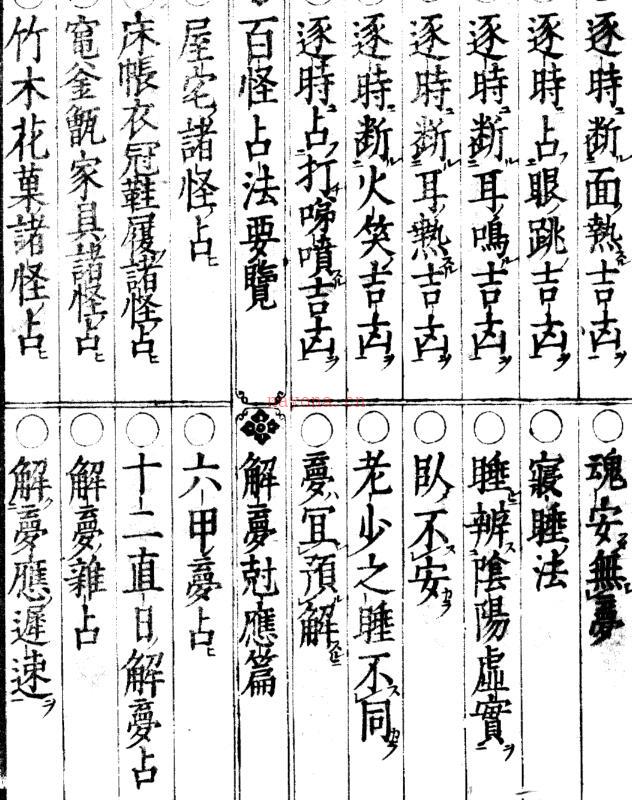 逐時断面熱吉凶
逐時占眼跳吉凶
逐時断耳鳴吉凶
逐時断耳熱吉凶
逐時断火笑吉凶
逐時占打啼噴吉凶
百怪占法要覽
屋宅諸怪占
床帳衣冠鞋履諸怪占
竃釜甑家具諸怪占
竹木花菓諸怪占
魂安無夢
寢睡法
睡辨陰陽虛實
臥不安
老少之睡不同
夢冝預解
解夢尅應篇
六甲夢占
十二直日解夢占
解夢雜占
解夢應遲速